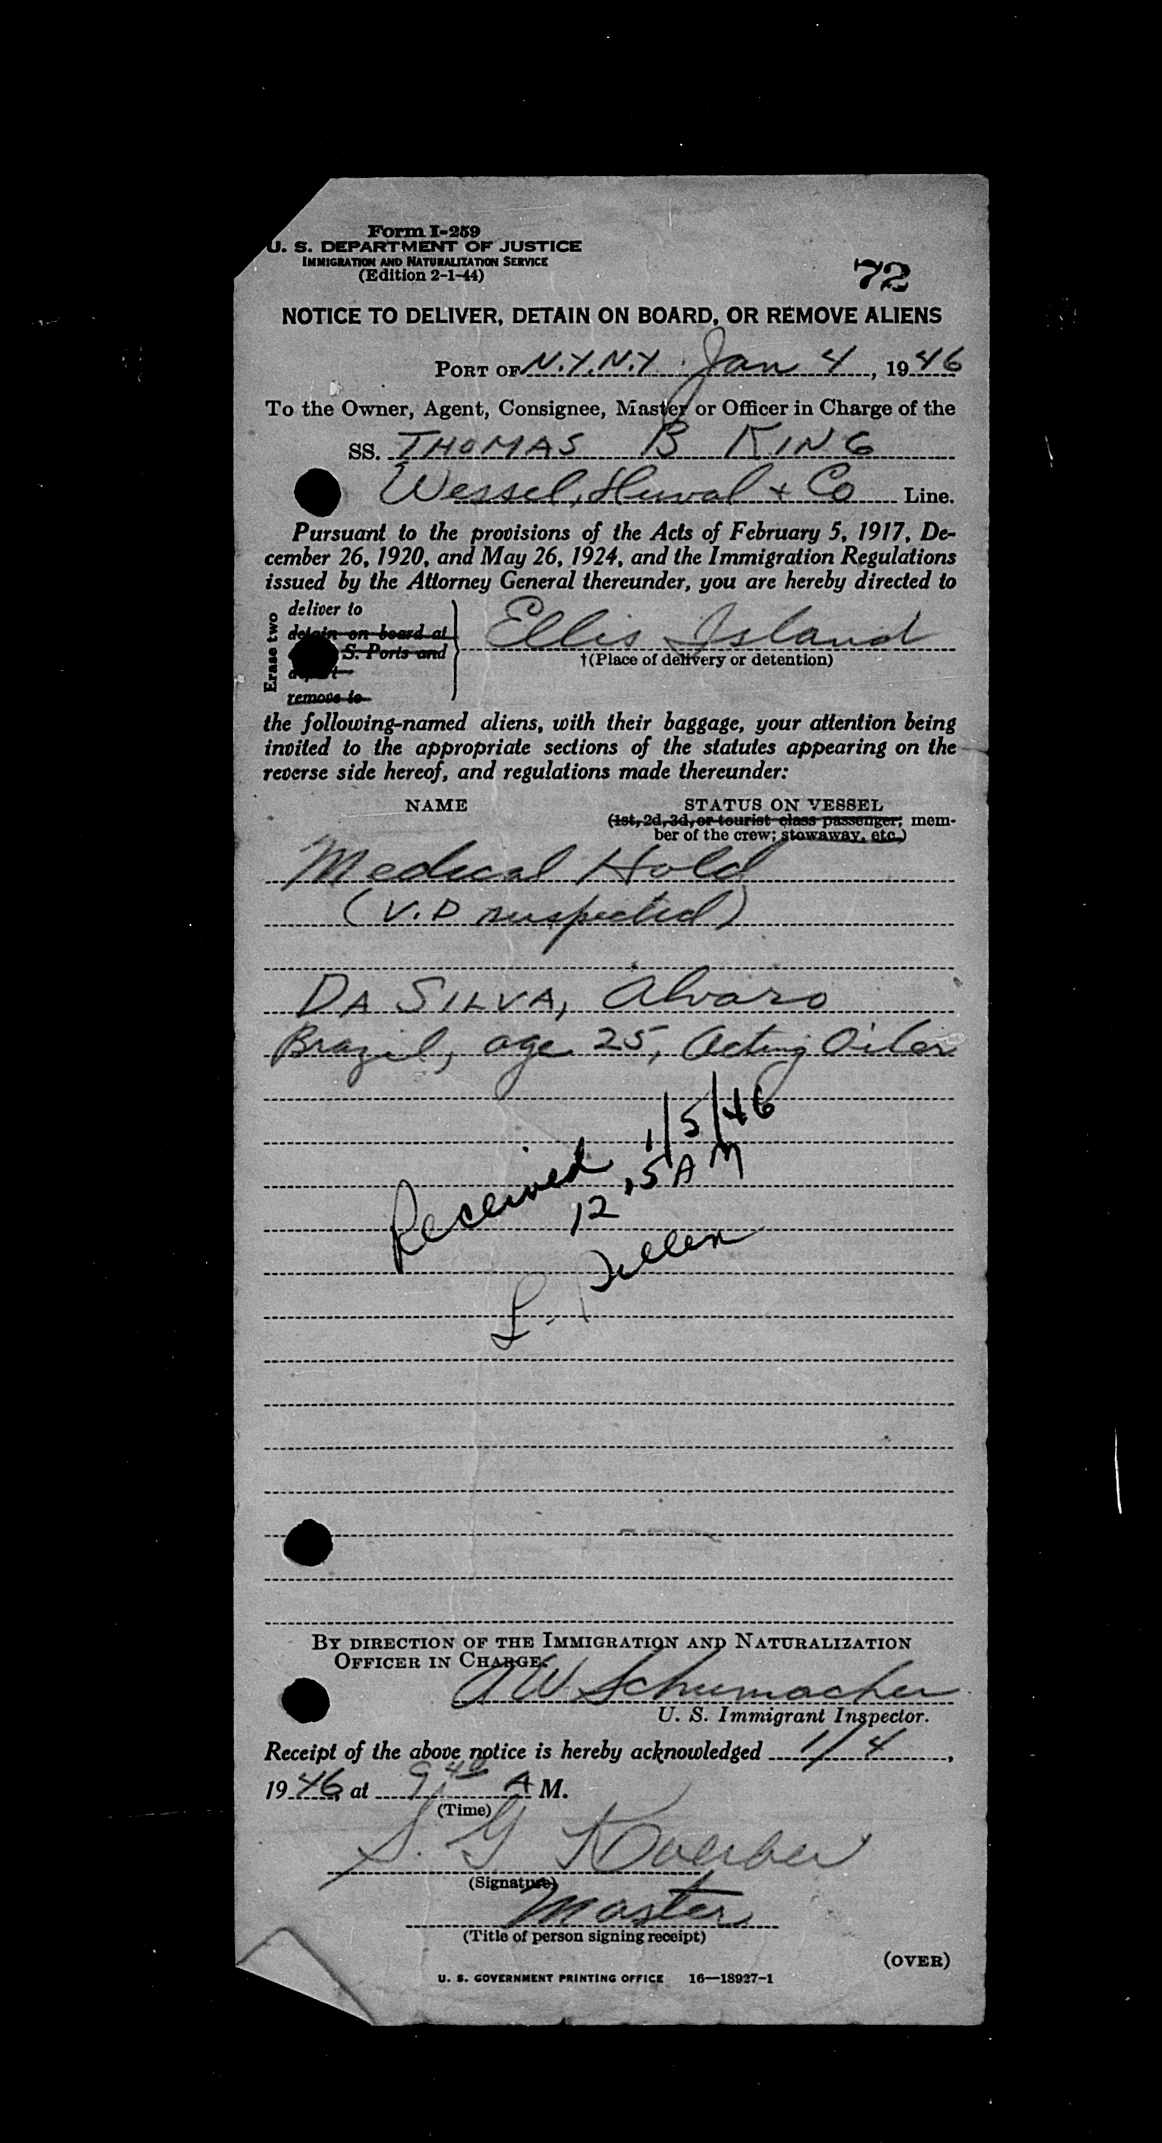 Form I-259
U. S. DEPARTMENT OF JUSTICE
IMMIGRATION AND NATURALIZATION SERVICE
(Edition 2-1-44)
72
NOTICE TO DELIVER, DETAIN ON BOARD, OR REMOVE ALIENS
PORT OF N.Y. N.Y. Jan 4, 1946
To the Owner, Agent, Consignee, Master or Officer in Charge of the
SS. THOMAS B KING
Wessel, Duval + Co Line.
Pursuant to the provisions of the Acts of February 5, 1917, De-
cember 26, 1920, and May 26, 1924, and the Immigration Regulations
issued by the Attorney General thereunder, you are hereby directed to
Erase two
deliver to
detain on board at
S. Ports and
depart
remove to
Ellis Island
†(Place of delivery or detention)
the following-named aliens, with their baggage, your attention being
invited to the appropriate sections of the statutes appearing on the
reverse side hereof, and regulations made thereunder:
NAME STATUS ON VESSEL
(1st, 2d, 3d, or tourist class passenger; mem-
ber of the crew; stowaway, etc.)
Medical Hold
(V.D suspected)
DA SILVA, Alvaro
Brazil, age 25, Acting Oiler
Received 1/5/46
12,5 AM
L.
BY DIRECTION OF THE IMMIGRATION AND NATURALIZATION
OFFICER IN CHARGE.
A W Schumacher
U. S. Immigrant Inspector.
Receipt of the above notice is hereby acknowledged 1/4,
1946 at 9 40 A M.
(Time)
S. G Koerber
(Signature)
Master
(Title of person signing receipt)
(OVER)
U. S. GOVERNMENT PRINTING OFFICE 16—18927-1